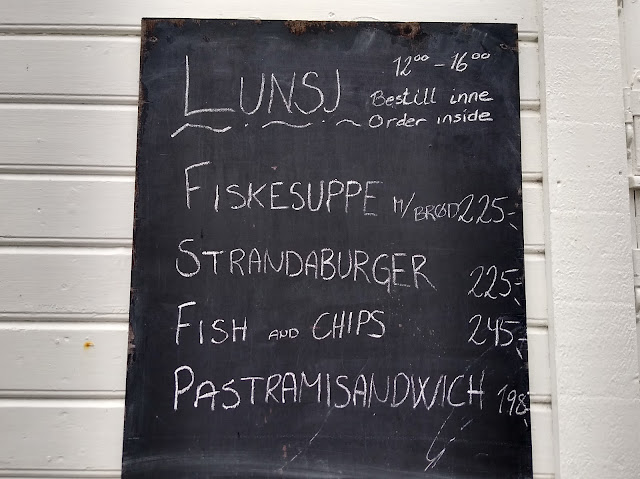 LUNSJ 12⁰⁰ - 16⁰⁰
Bestill inne
Order inside
FISKESUPPE M/BRØD 225,-
STRANDABURGER 225,-
FISH AND CHIPS 245,-
PASTRAMISANDWICH 198,-